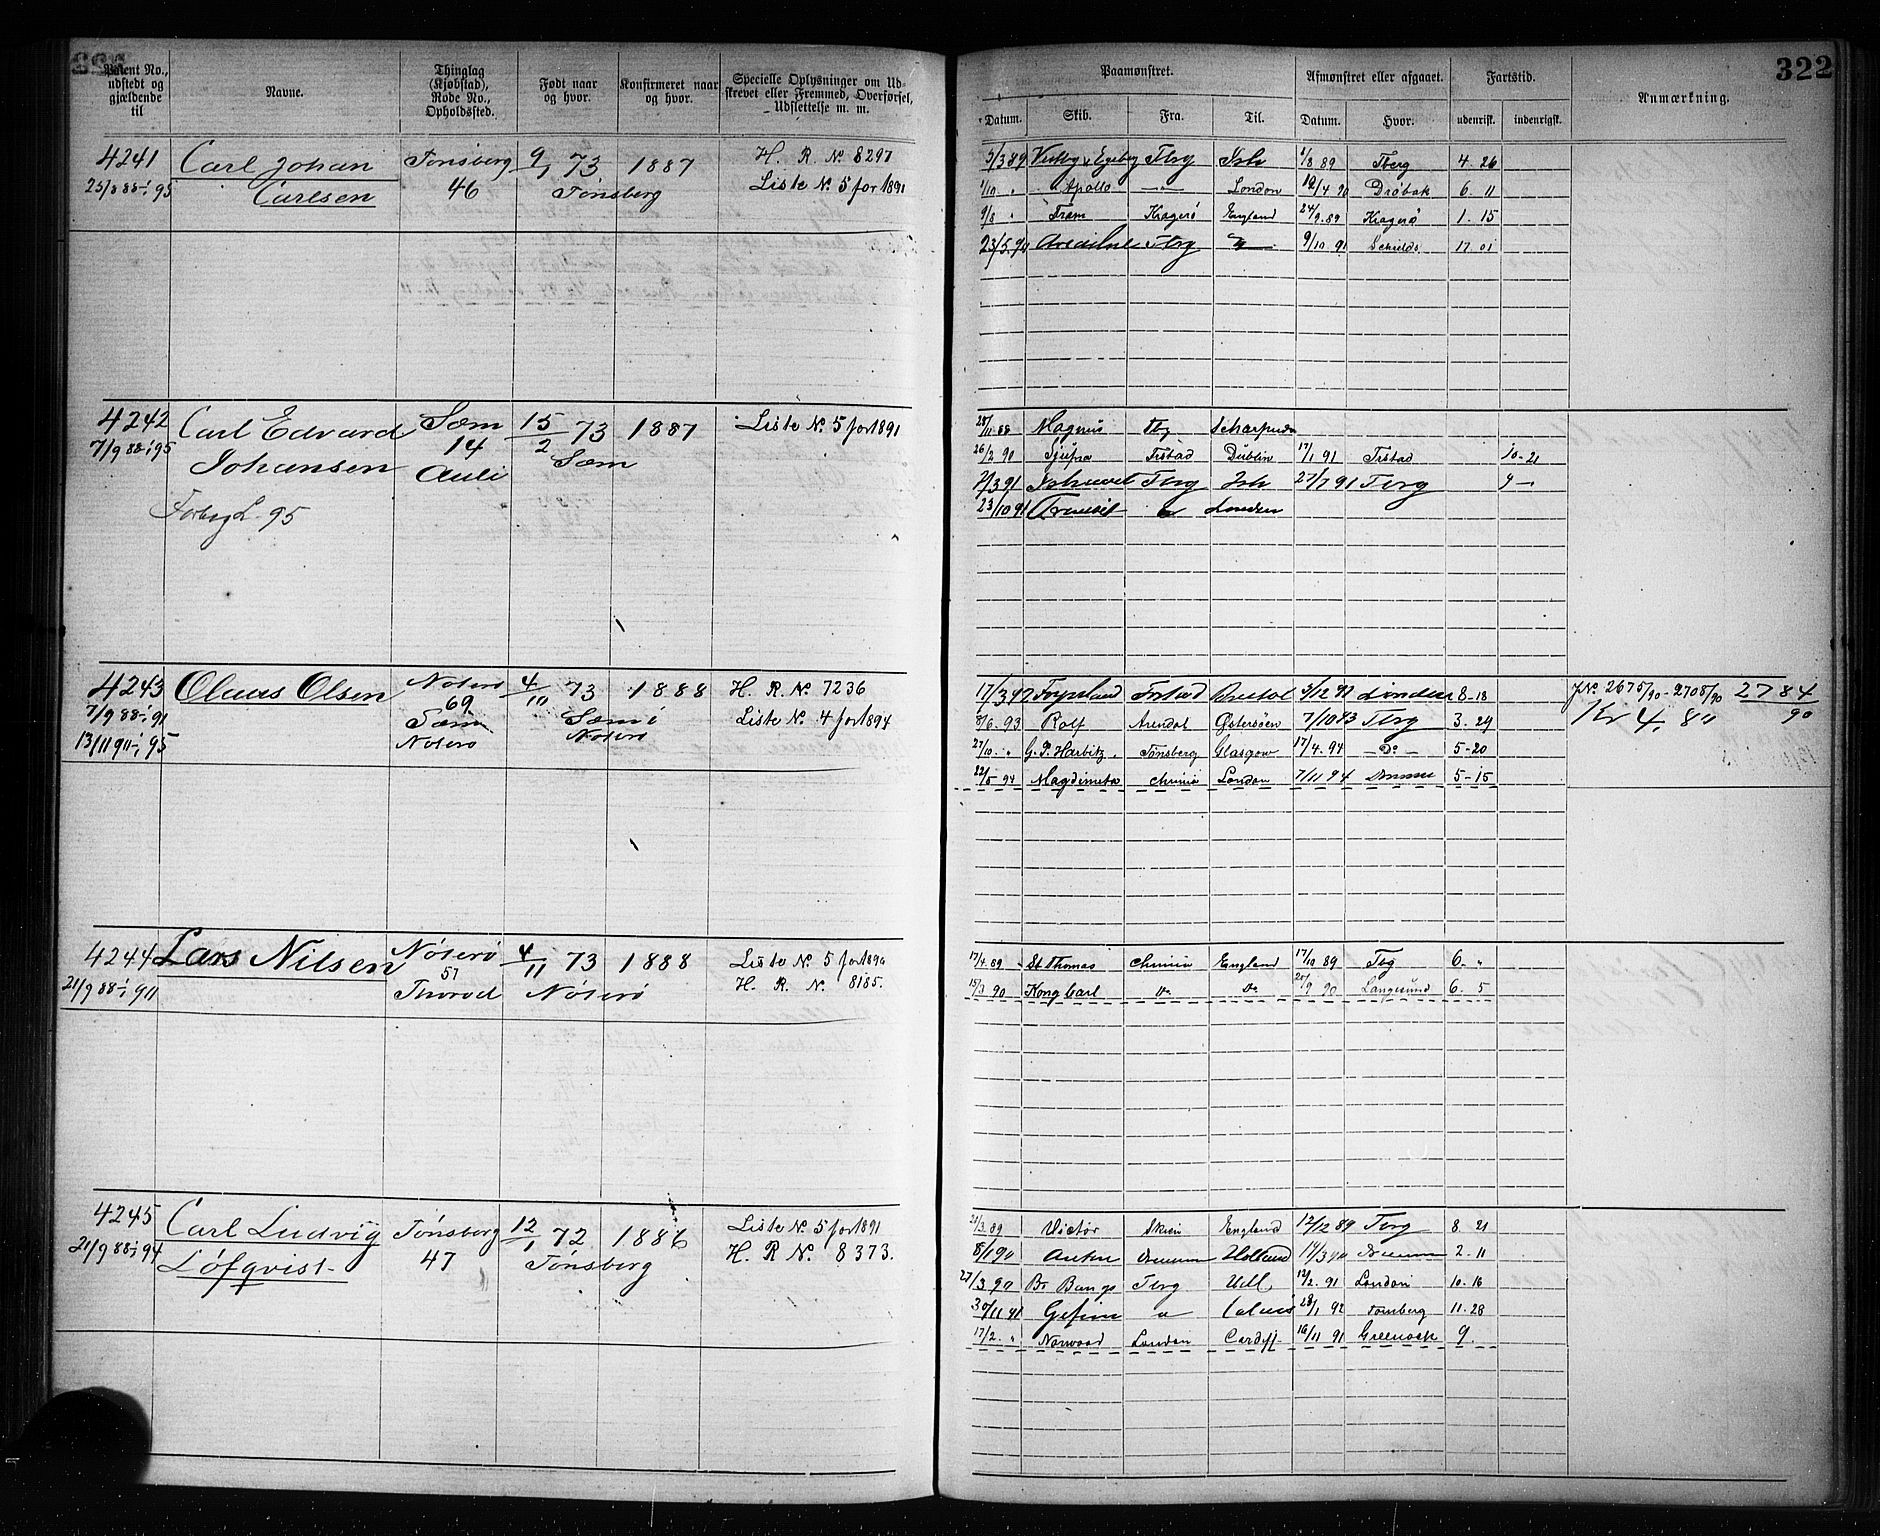 322
Patent No., udstedt og gjældende til
Navne.
Thinglag (Kjøbstad), Rode No., Opholdssted.
Født naar og hvor.
Konfirmeret naar og hvor.
Specielle Oplysninger om Udskrevet eller Fremmed, Overførsel, Udslettelse m. m.
Paamønstret.
Afmønstret eller afgaaet.
Fartstid.
Anmærkning.
Datum. Skib. Fra. Til. Datum. Hvor. udenrigsk. indenrigsk.
4241 Carl Johan Tønsberg 9/1 73 1887 H. R. No 8297
25/8 88-1/1 95 Carlsen 46 Tønsberg Liste No. 5 for 1891
5/3 89 Tbrg Ish 1/8 89 Tberg 4. 26
1/10 " Apollo — London 19/4 90 Drøbak 6. 11
9/8 " Fram Kragerø England 24/9.89 Kragerø 1. 15
23/5.90 Tbrg 9/10.91 Schields 17.01
4242 Carl Edvard Sæm 15/2 73 1887 Liste No. 5 for 1891
7/9 88-1/1 95 Johansen 14 Sæm
Auli
95
28/11 88 Magnus Tbg
26/2 90 Frstad Dublin 17/1 91 Frstad 10-21
Tbrg Ish 27/7 91 Tbrg
23/10 91 London
4243 Olaus Olsen Nøterø 4/11 73 1888 H. R. No. 7236
7/9 88-1/1 91 69 Sæm i Liste No. 4 for 1894
13/11 91-1/1 95 Sæm Nøterø
Nøterø
17/3 92 Frstad 5/12 92 London 8-18 JNo 2675/90 - 2708/90 2784/90
8/6. 93 Rolf Arendal Østersøen 7/10 93 Tbrg 3. 29 Kr 4, 80
27/10. " G. P. Harbitz. Tønsberg Glasgow 17/4. 94 — Do — 5-20
22/5 94 Chrinia London 7/11 94 5-15
4244 Lars Nilsen Nøterø 4/11 73 1888 Liste No. 5 for 1890
21/9 88-1/1 911 57 Nøterø H. R. No. 8185.
Thorød
17/4.89 St Thomas Chrinia England 17/10 89 Tbg 6. "
15/3 90 Kong Carl Do Do 25/9 90 Langesund 6. 5
4245 Carl Ludvig Tønsberg 12/1 72 1886 Liste No. 5 for 1891
21/9 88-1/1 94 Løfqvist 47 Tønsberg H. R. No. 8373.
21/3.89 Victor Skien England 12/12 89 Tbrg 8 21
8/1 90 Holland 14/3 90 2. 11
27/3 90 Tbrg Hull 12/2. 91 London 10. 16
30/11 91 Gefion 28/1 92 Tønsberg 11. 28
17/2. " Norwood London Cardiff 16/11 91 Greenock 9.